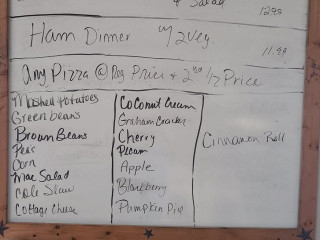 & Salad
12.99
Ham Dinner w/ 2 Veg
11.99
Any Pizza @ Reg Price & 2nd 1/2 Price
Mashed Potatoes
Green beans
Brown Beans
Peas
Corn
Mac Salad
Cole Slaw
Cottage Cheese
Coconut Cream
Graham Cracker
Cherry
Pecan
Apple
Blackberry
Pumpkin Pie
Cinnamon Roll